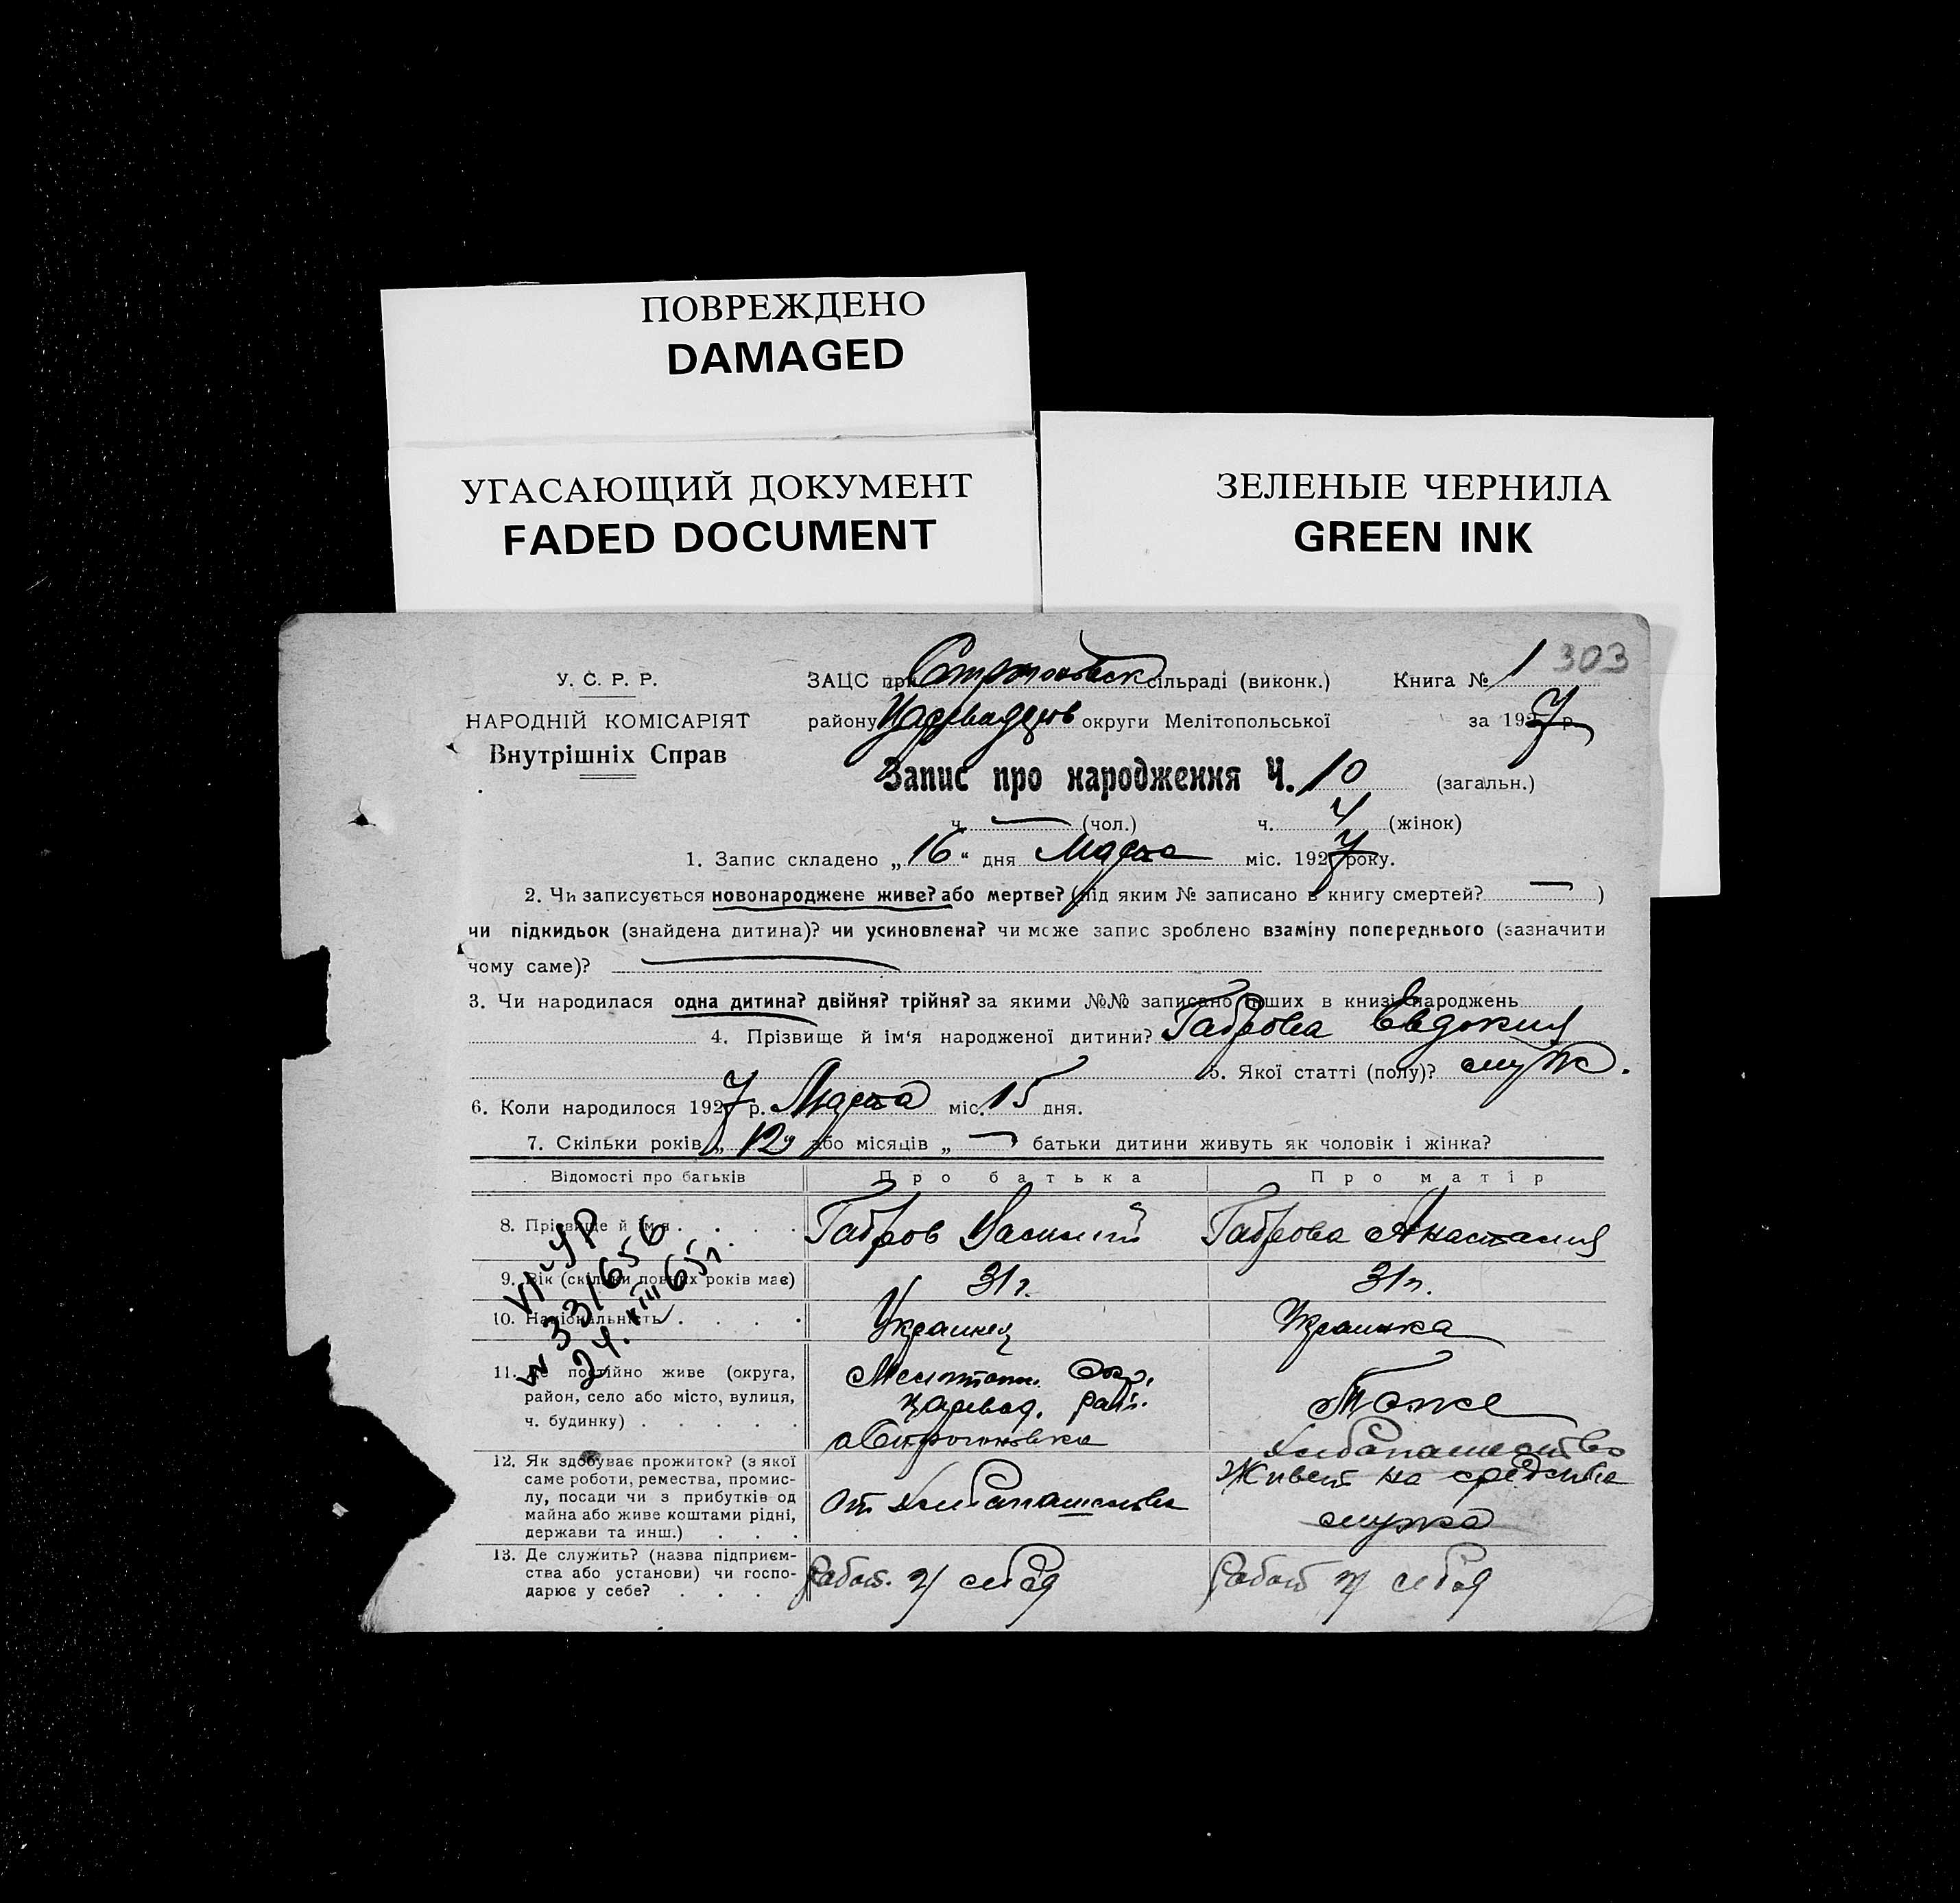 ПОВРЕЖДЕНО
DAMAGED
УГАСАЮЩИЙ ДОКУМЕНТ
FADED DOCUMENT
ЗЕЛЕНЫЕ ЧЕРНИЛА
GREEN INK
303
У. С. Р. Р.
НАРОДНІЙ КОМІСАРІЯТ
Внутрішніх Справ
ЗАЦС при сільраді (виконк.) Книга № 1
району округи Мелітопольської за 1927 р.
Запис про народження Ч. 10 (загальн.)
ч. — (чол.) ч. 4 (жінок)
1. Запис складено „16“ дня Марта міс. 1927 року.
2. Чи записується новонароджене живе? або мертве? (під яким № записано в книгу смертей? — )
чи підкидьок (знайдена дитина)? чи усиновлена? чи може запис зроблено взаміну попереднього (зазначити
чому саме)? —
3. Чи народилася одна дитина? двійня? трійня? за якими №№ записано інших в книзі народжень
4. Прізвище й ім'я народженої дитини? Габрова Евдокия
5. Якої статті (полу)?
6. Коли народилося 1927 р. Марта міс. 15 дня.
7. Скільки років „12“ або місяців „ — батьки дитини живуть як чоловік і жінка?
Відомості про батьків Про батька Про матір
8. Прізвище й ім'я . . . . Габров Василий Габрова Анастасия
9. Вік (скільки повних років має) 31 г. 31 г.
10. Національність . . . . Украинец Украинка
11. Де постійно живе (округа,
район, село або місто, вулиця,
ч. будинку) . . . . .
Мелитоп. Окр.
Царевод. рай.
Тоже
12. Як здобуває прожиток? (з якої
саме роботи, ремества, промис-
лу, посади чи з прибутків од
майна або живе коштами рідні,
держави та инш.) . . .
От хлебопашества
хлебопашество
Живет на средства
мужа
13. Де служить? (назва підприєм-
ства або установи) чи госпо-
дарює у себе? . . . .
Работ. у себя
Работ у себя